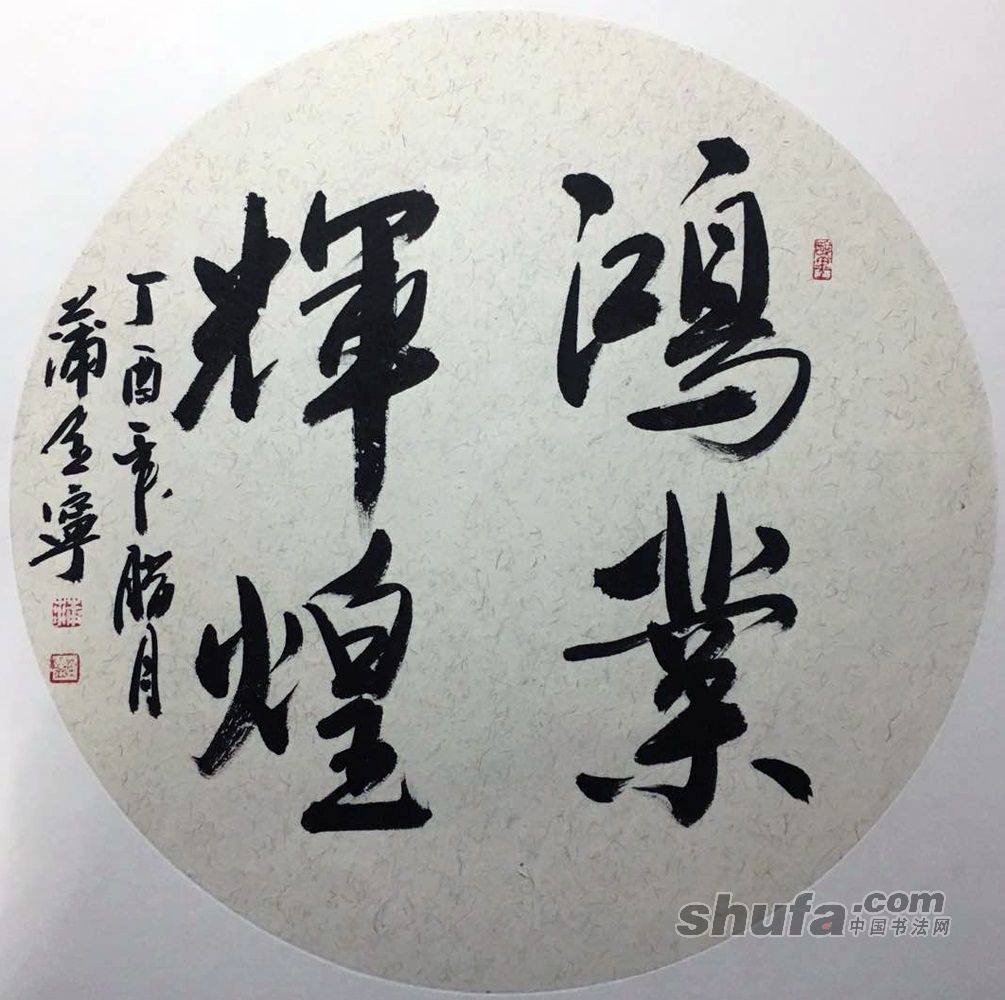 鴻業
輝煌
丁酉年腊月
蒲金寧
shufa.com
中国书法网